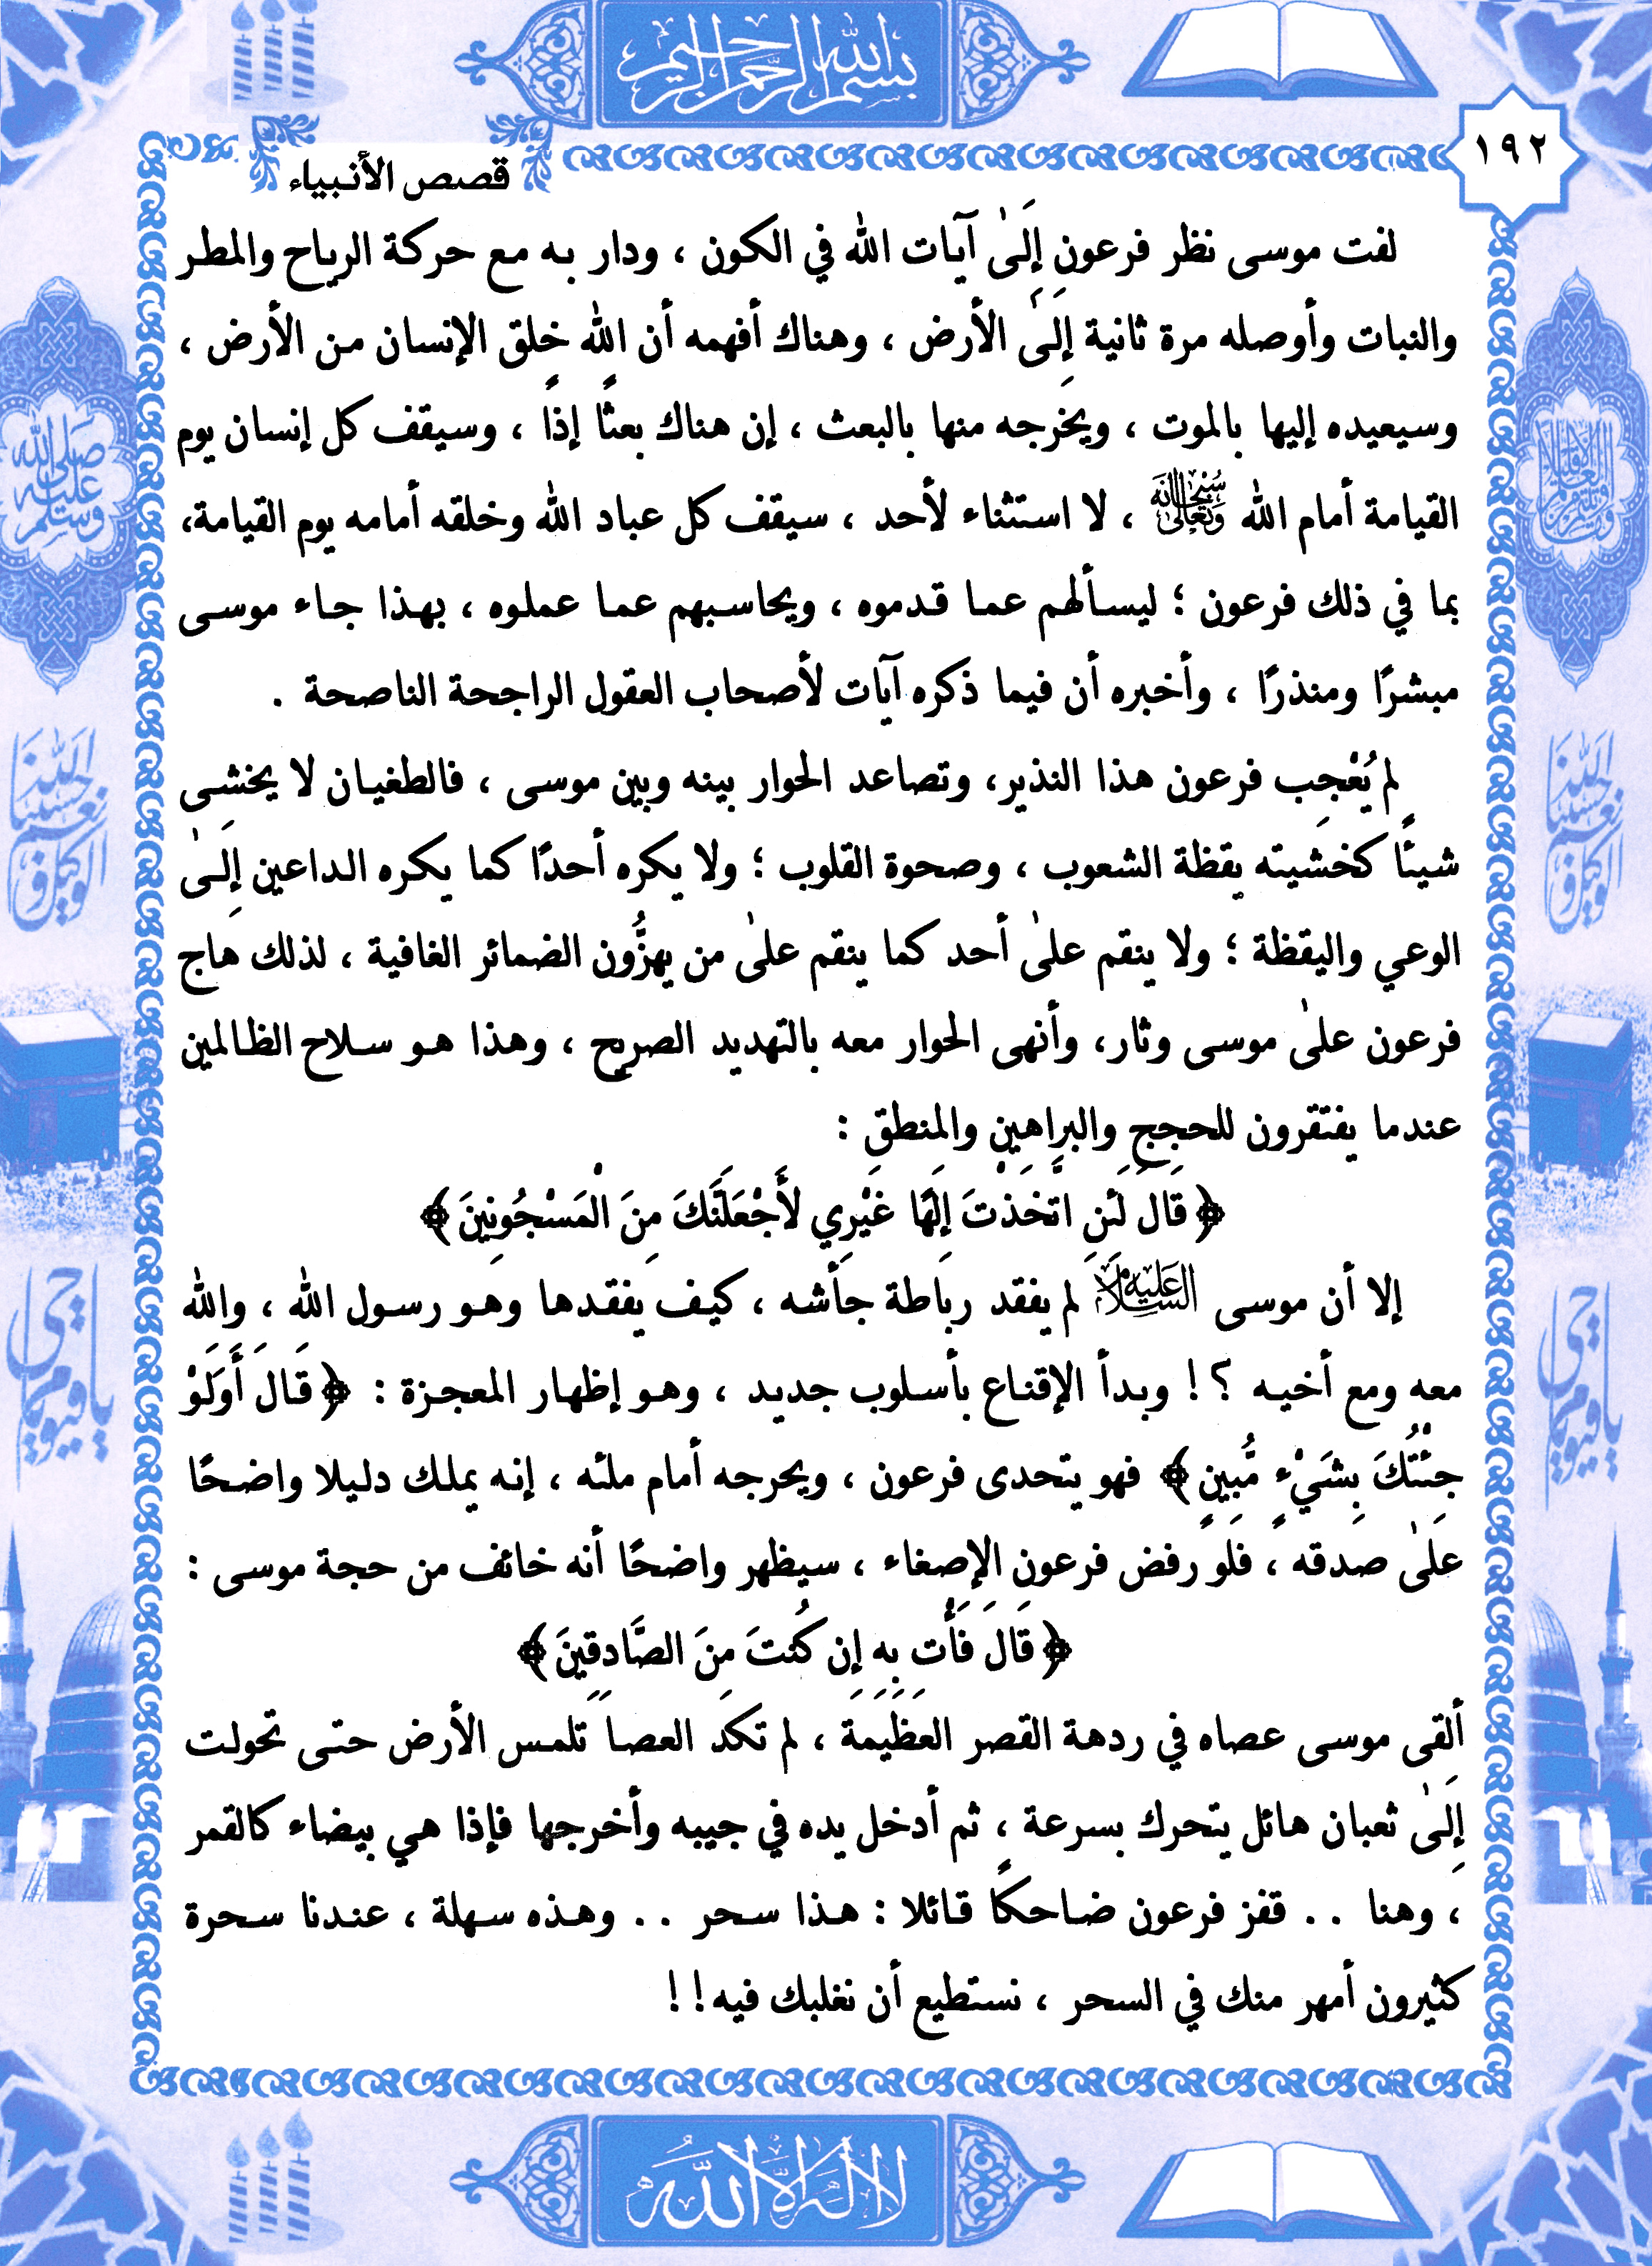 بسم الله الرحمن الرحيم
١٩٢
قصص الأنبياء
لفت موسى نظر فرعون إِلَىٰ آيات الله في الكون ، ودار به مع حركة الرياح والمطر
والنبات وأوصله مرة ثانية إِلَىٰ الأرض ، وهناك أفهمه أن الله خلق الإنسان من الأرض ،
وسيعيده إليها بالموت ، ويخرجه منها بالبعث ، إن هناك بعثًا إذًا ، وسيقف كل إنسان يوم
القيامة أمام الله سُبْحَانَهُ وَتَعَالَى ، لا استثناء لأحد ، سيقف كل عباد الله وخلقه أمامه يوم القيامة،
بما في ذلك فرعون ؛ ليسألهم عما قدموه ، ويحاسبهم عما عملوه ، بهذا جاء موسى
مبشرًا ومنذرًا ، وأخبره أن فيما ذكره آيات لأصحاب العقول الراجحة الناصحة .
لم يُعْجِب فرعون هذا النذير، وتصاعد الحوار بينه وبين موسى ، فالطغيان لا يخشى
شيئًا كخشيته يقظة الشعوب ، وصحوة القلوب ؛ ولا يكره أحدًا كما يكره الداعين إِلَىٰ
الوعي واليقظة ؛ ولا ينقم علىٰ أحد كما ينقم علىٰ من يهزُّون الضمائر الغافية ، لذلك هاج
فرعون علىٰ موسى وثار، وأنهى الحوار معه بالتهديد الصريح ، وهذا هو سلاح الظالمين
عندما يفتقرون للحجج والبراهين والمنطق :
﴿قَالَ لَئِنِ اتَّخَذْتَ إِلَهًا غَيْرِي لَأَجْعَلَنَّكَ مِنَ الْمَسْجُونِينَ﴾
إلا أن موسى عليه السلام لم يفقد رباطة جأشه ، كيف يفقدها وهو رسول الله ، والله
معه ومع أخيه ؟ ! وبدأ الإقناع بأسلوب جديد ، وهو إظهار المعجزة : ﴿قَالَ أَوَلَوْ
جِئْتُكَ بِشَيْءٍ مُّبِينٍ﴾ فهو يتحدى فرعون ، ويحرجه أمام ملئه ، إنه يملك دليلا واضحًا
عَلَىٰ صدقه ، فلو رفض فرعون الإصغاء ، سيظهر واضحًا أنه خائف من حجة موسى :
﴿قَالَ فَأْتِ بِهِ إِن كُنتَ مِنَ الصَّادِقِينَ﴾
ألقى موسى عصاه في ردهة القصر العظيمة ، لم تكد العصا تلمس الأرض حتى تحولت
إِلَىٰ ثعبان هائل يتحرك بسرعة ، ثم أدخل يده في جيبه وأخرجها فإذا هي بيضاء كالقمر
، وهنا . . قفز فرعون ضاحكًا قائلا : هذا سحر . . وهذه سهلة ، عندنا سحرة
كثيرون أمهر منك في السحر ، نستطيع أن نغلبك فيه ! !
لا إله إلا الله